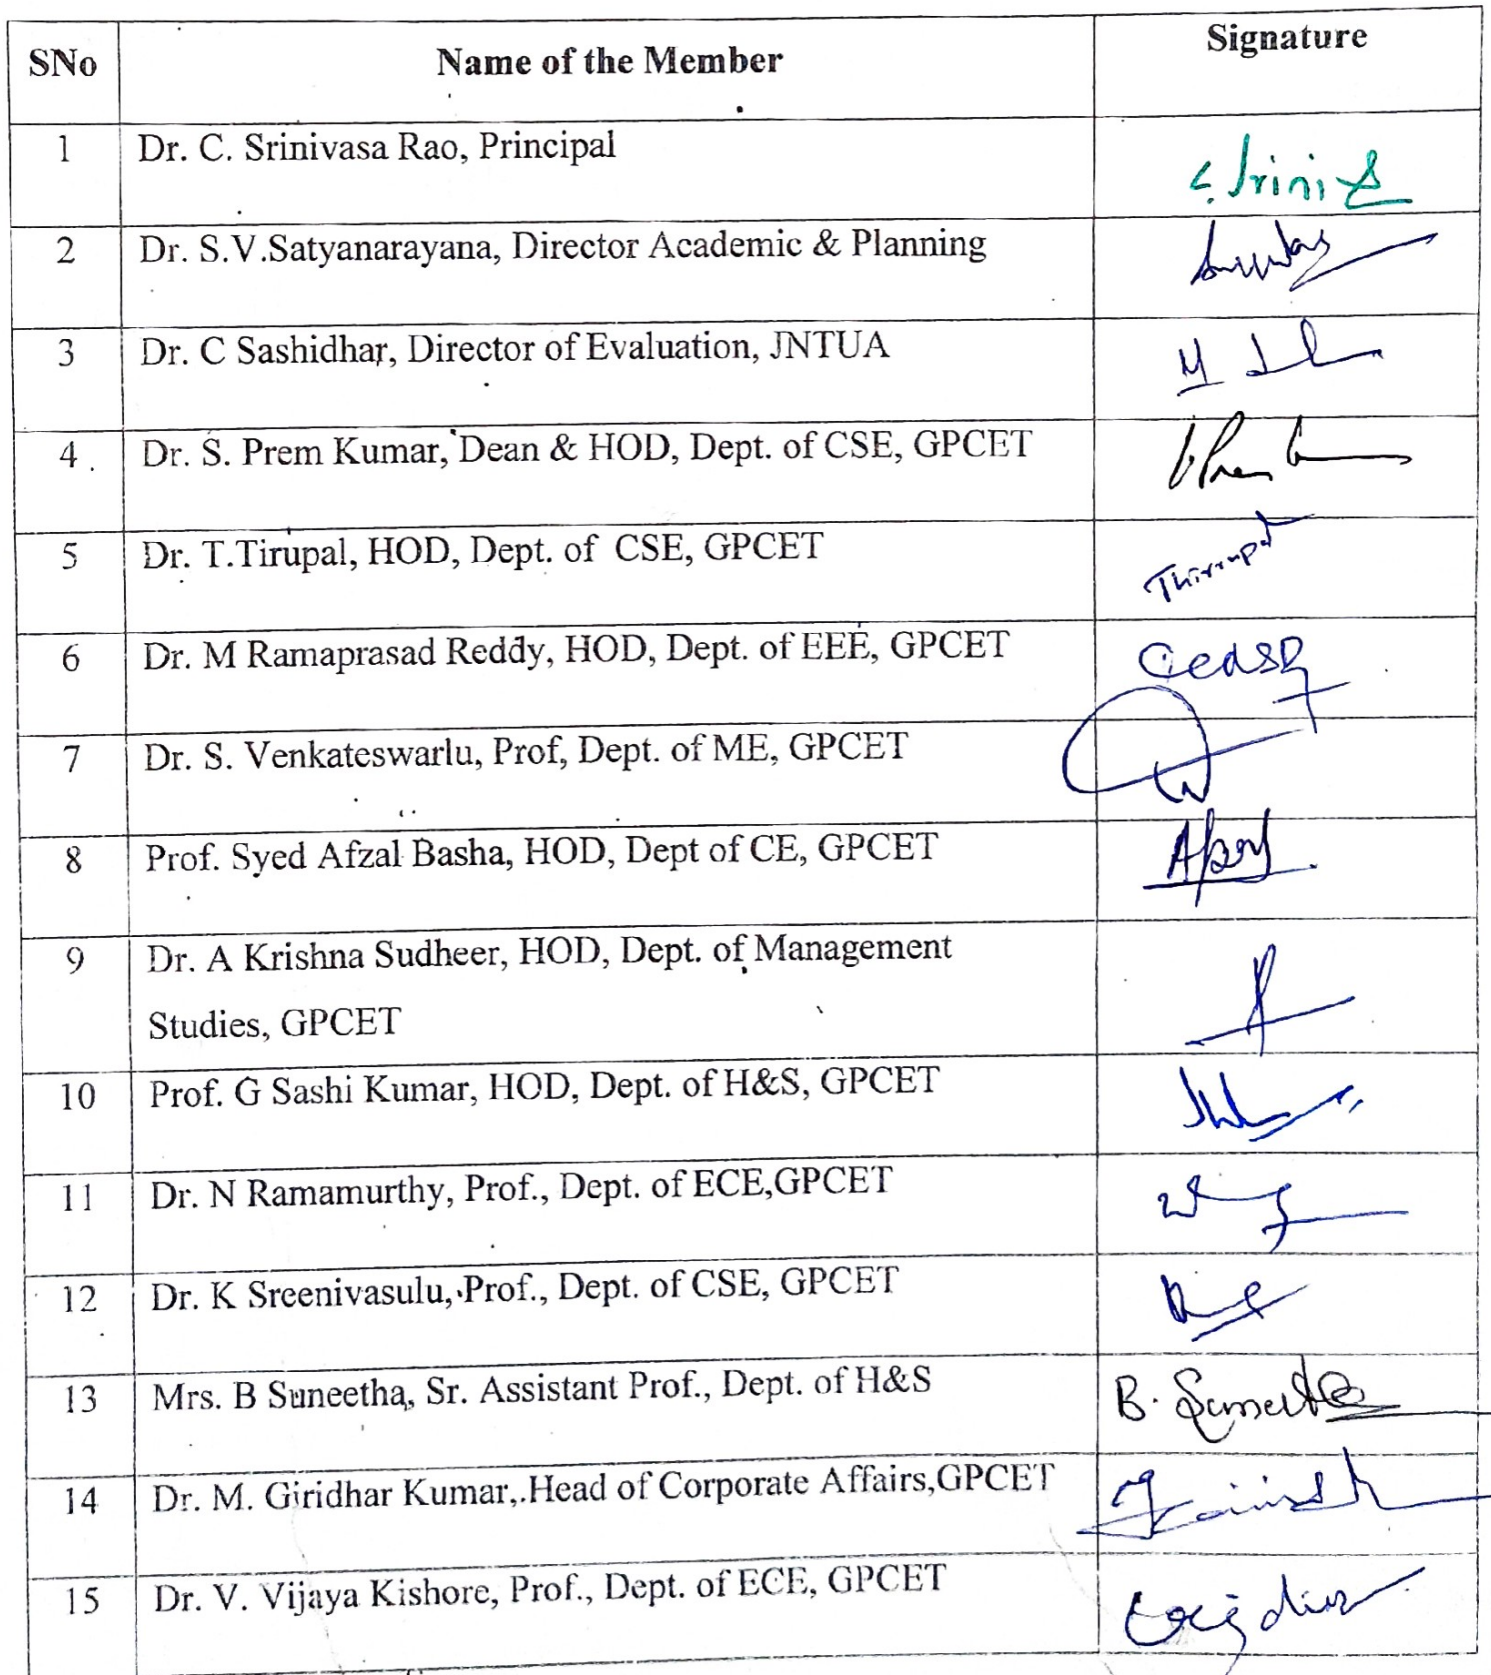 SNo Name of the Member Signature
1 Dr. C. Srinivasa Rao, Principal
2 Dr. S.V.Satyanarayana, Director Academic & Planning
3 Dr. C Sashidhar, Director of Evaluation, JNTUA
4 Dr. S. Prem Kumar, Dean & HOD, Dept. of CSE, GPCET
5 Dr. T.Tirupal, HOD, Dept. of CSE, GPCET
6 Dr. M Ramaprasad Reddy, HOD, Dept. of EEE, GPCET
7 Dr. S. Venkateswarlu, Prof, Dept. of ME, GPCET
8 Prof. Syed Afzal Basha, HOD, Dept of CE, GPCET
9 Dr. A Krishna Sudheer, HOD, Dept. of Management
Studies, GPCET
10 Prof. G Sashi Kumar, HOD, Dept. of H&S, GPCET
11 Dr. N Ramamurthy, Prof., Dept. of ECE,GPCET
12 Dr. K Sreenivasulu, Prof., Dept. of CSE, GPCET
13 Mrs. B Suneetha, Sr. Assistant Prof., Dept. of H&S
14 Dr. M. Giridhar Kumar, Head of Corporate Affairs,GPCET
15 Dr. V. Vijaya Kishore, Prof., Dept. of ECE, GPCET